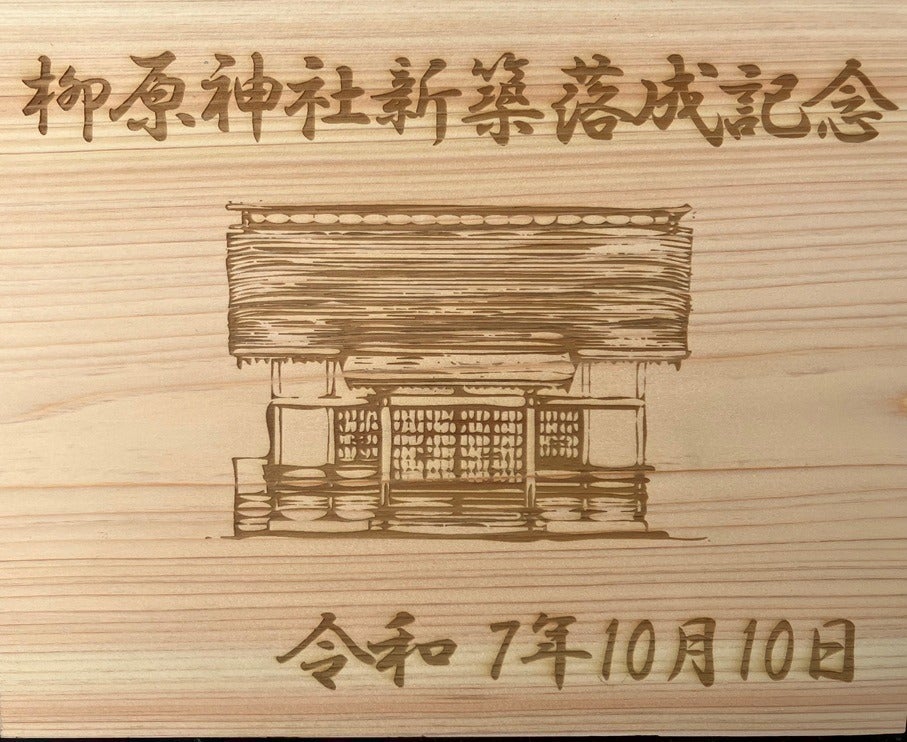 柳原神社新築落成記念
令和 7年10月10日